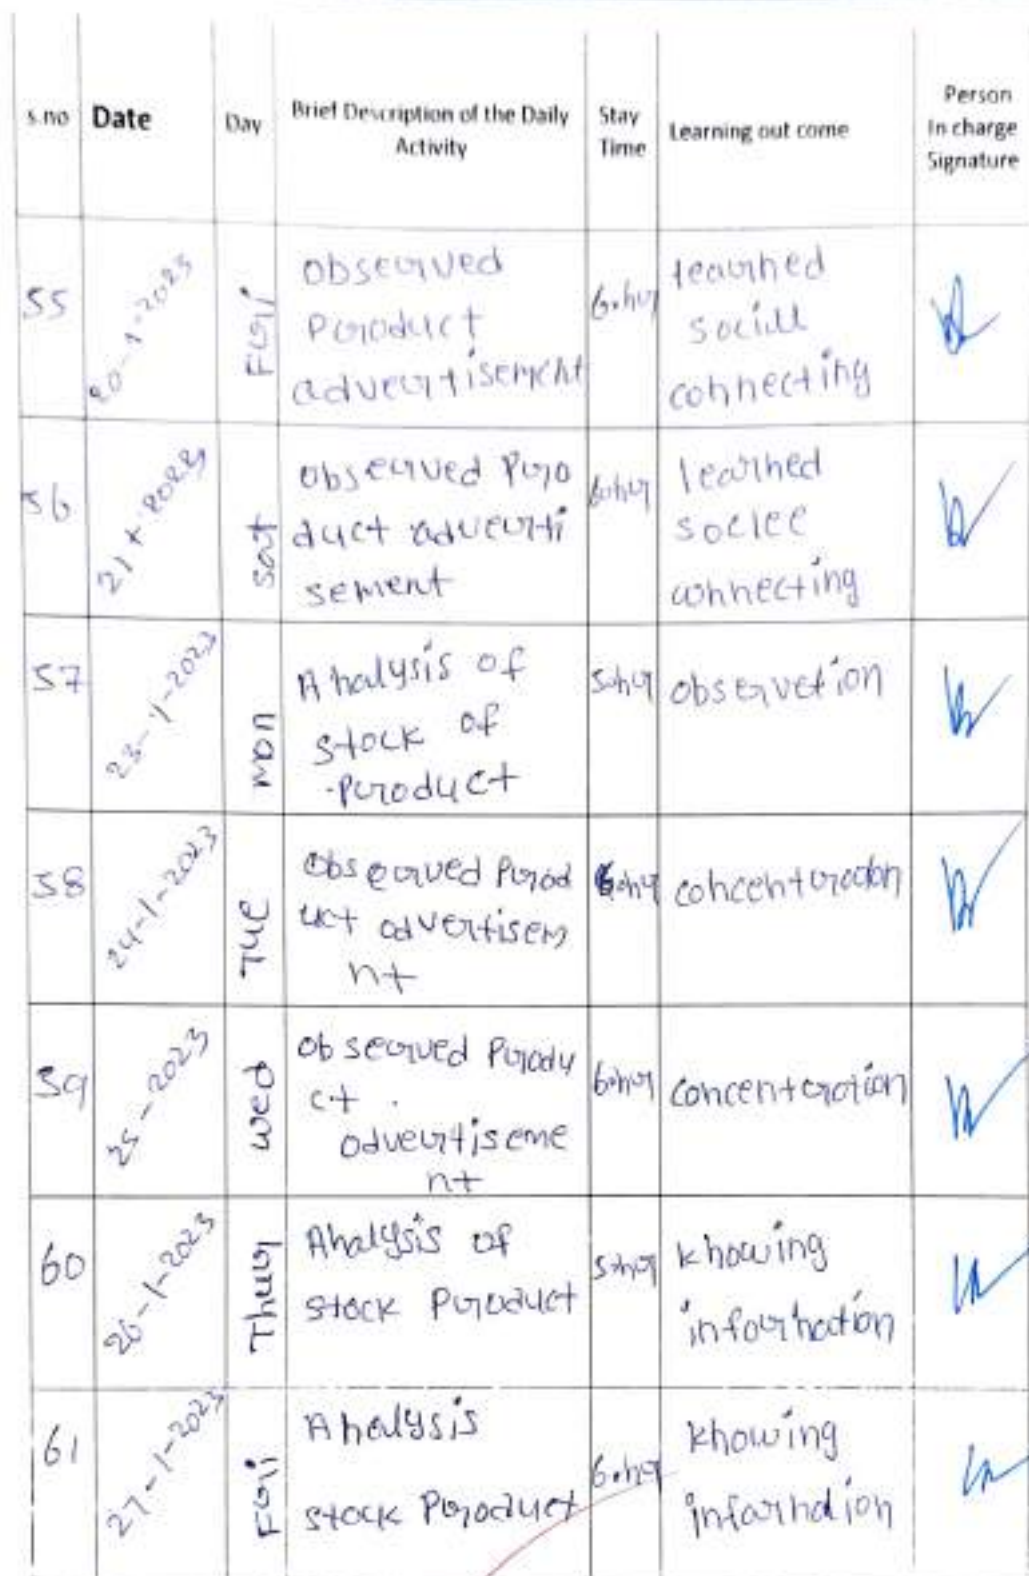 s.no Date Day Brief Description of the Daily Activity Stay Time Learning out come Person In charge Signature
55 20-1-2023 Fri observed Product advertisement 6.hr learned sociu connecting
56 21 2023 sat observed Pro duct adverti sement 6.hr learned connecting
57 23-1-2023 mon Analysis of stock of product 5.hr observetion
58 24-1-2023 Tue observed Prod uct advertisem nt 6.hr
59 25-2023 wed observed Produ ct advertiseme nt 6.hr concenteration
60 26-1-2023 Thur Analysis of stock Product 5.hr knowing information
61 27-1-2023 Fri Analysis stock Product 6.hr knowing information